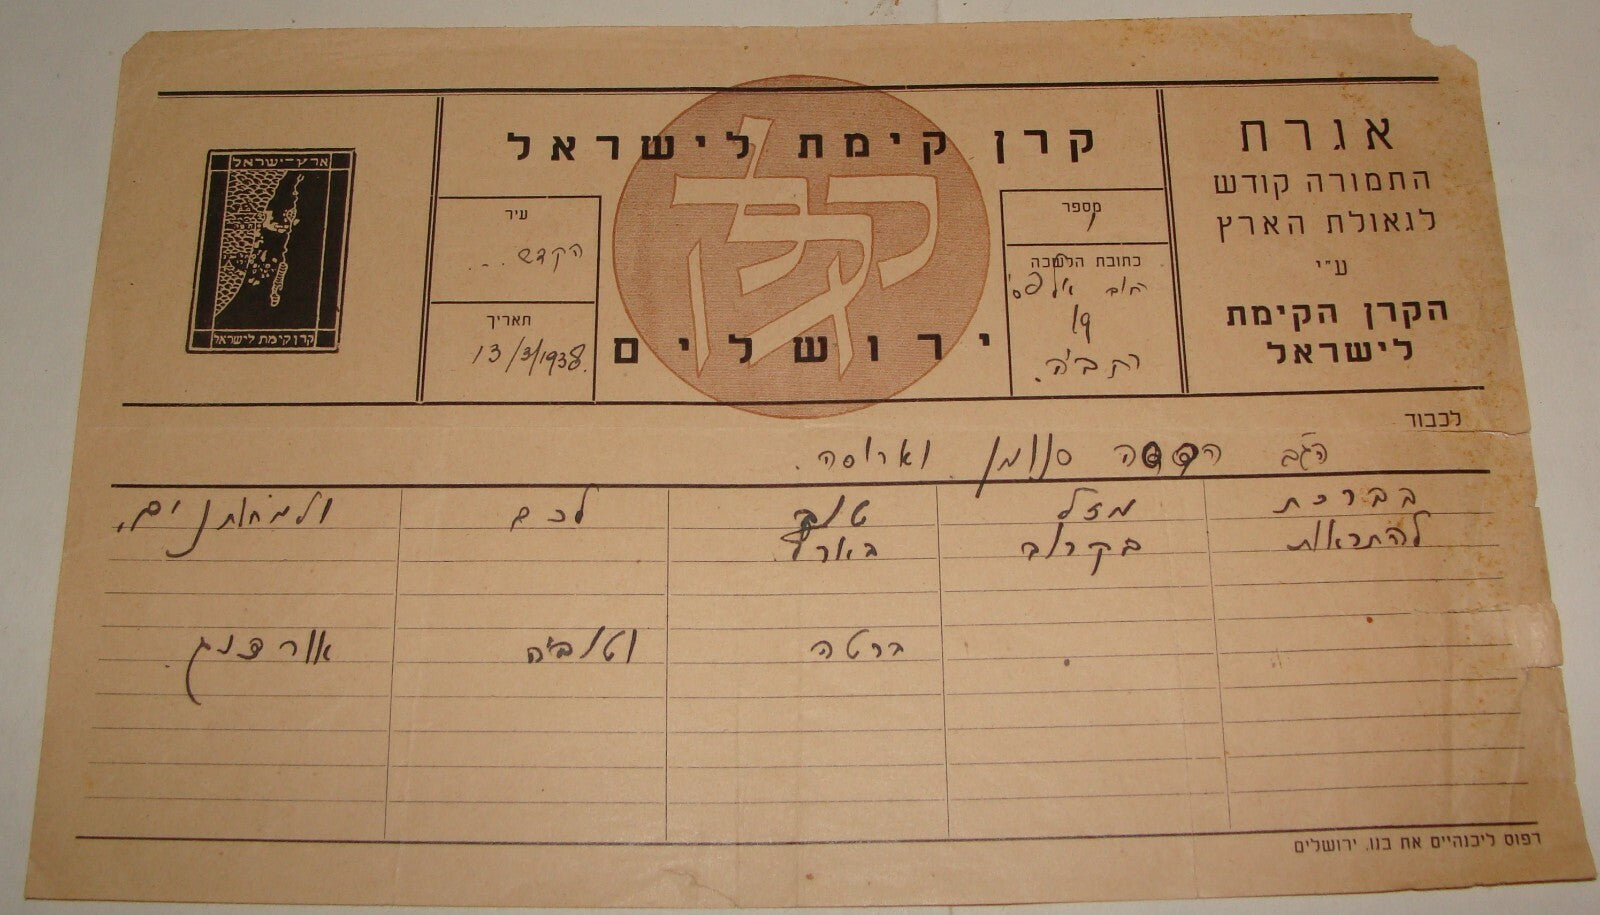 אגרת
התמורה קודש
לגאולת הארץ
ע"י
הקרן הקימת
לישראל
קרן קימת לישראל
קקל
ירושלים
מספר
1
כתובת הלשכה
רחוב
19
עיר
תאריך
13/3/1938.
ארץ-ישראל
קרן קימת לישראל
לכבוד
הגב סנומן וארוסה.
בברכת מזל טוב לכם ולמחותנים,
להתראות בקרוב בארץ
ברטה וטוביה
דפוס ליבנהיים את בנו. ירושלים